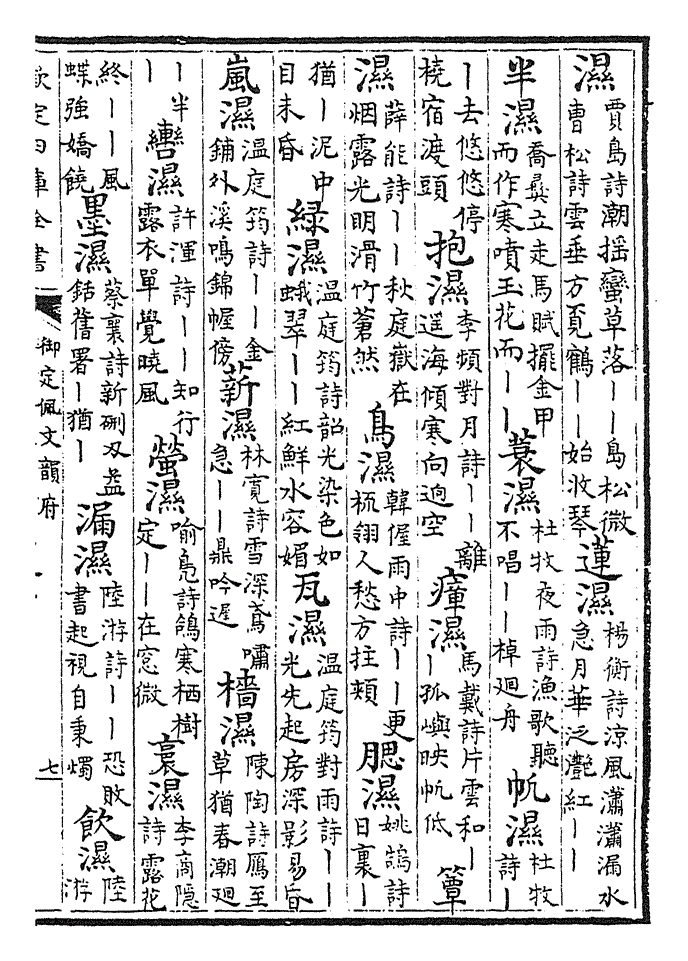 濕賈島詩潮摇蠻草落｜｜島松微曹松詩雲垂方覓鶴｜｜始收琴蓮濕楊衡詩涼風瀟瀟漏水急月華泛灧紅｜｜
半濕喬彝立走馬賦擺金甲而作寒噴玉花而｜｜蓑濕杜牧夜雨詩漁歌聽不唱｜｜棹廻舟帆濕杜牧詩｜
｜去悠悠停橈宿渡頭抱濕李頻對月詩｜｜離遥海傾寒向逈空瘴濕馬戴詩片雲和｜｜孤嶼映帆低簟
濕薛能詩｜｜秋庭嶽在烟露光明滑竹蒼然鳥濕韓偓雨中詩｜｜更梳翎人愁方拄頰腮濕姚鵠詩日裏｜
猶｜泥中目未昏綠濕温庭筠詩韶光染色如蛾翠｜｜紅鮮水容媚瓦濕温庭筠對雨詩｜｜光先起房深影易昏
嵐濕温庭筠詩｜｜金鋪外溪鳴錦幄傍薪濕林寛詩雪深鳶嘯急｜｜鼎吟遲檣濕陳陶詩鴈至草猶春潮廻
｜半｜轡濕許渾詩｜｜知行露衣單覺曉風螢濕喻鳧詩鴿寒栖樹定｜｜在窓微裛濕李商隱詩露花
終｜｜風蝶強嬌饒墨濕蔡襄詩新硎刃益銛舊署｜猶｜漏濕陸游詩｜｜恐敗書起視自秉燭飲濕陸游
欽定四庫全書
御定佩文韻府
七